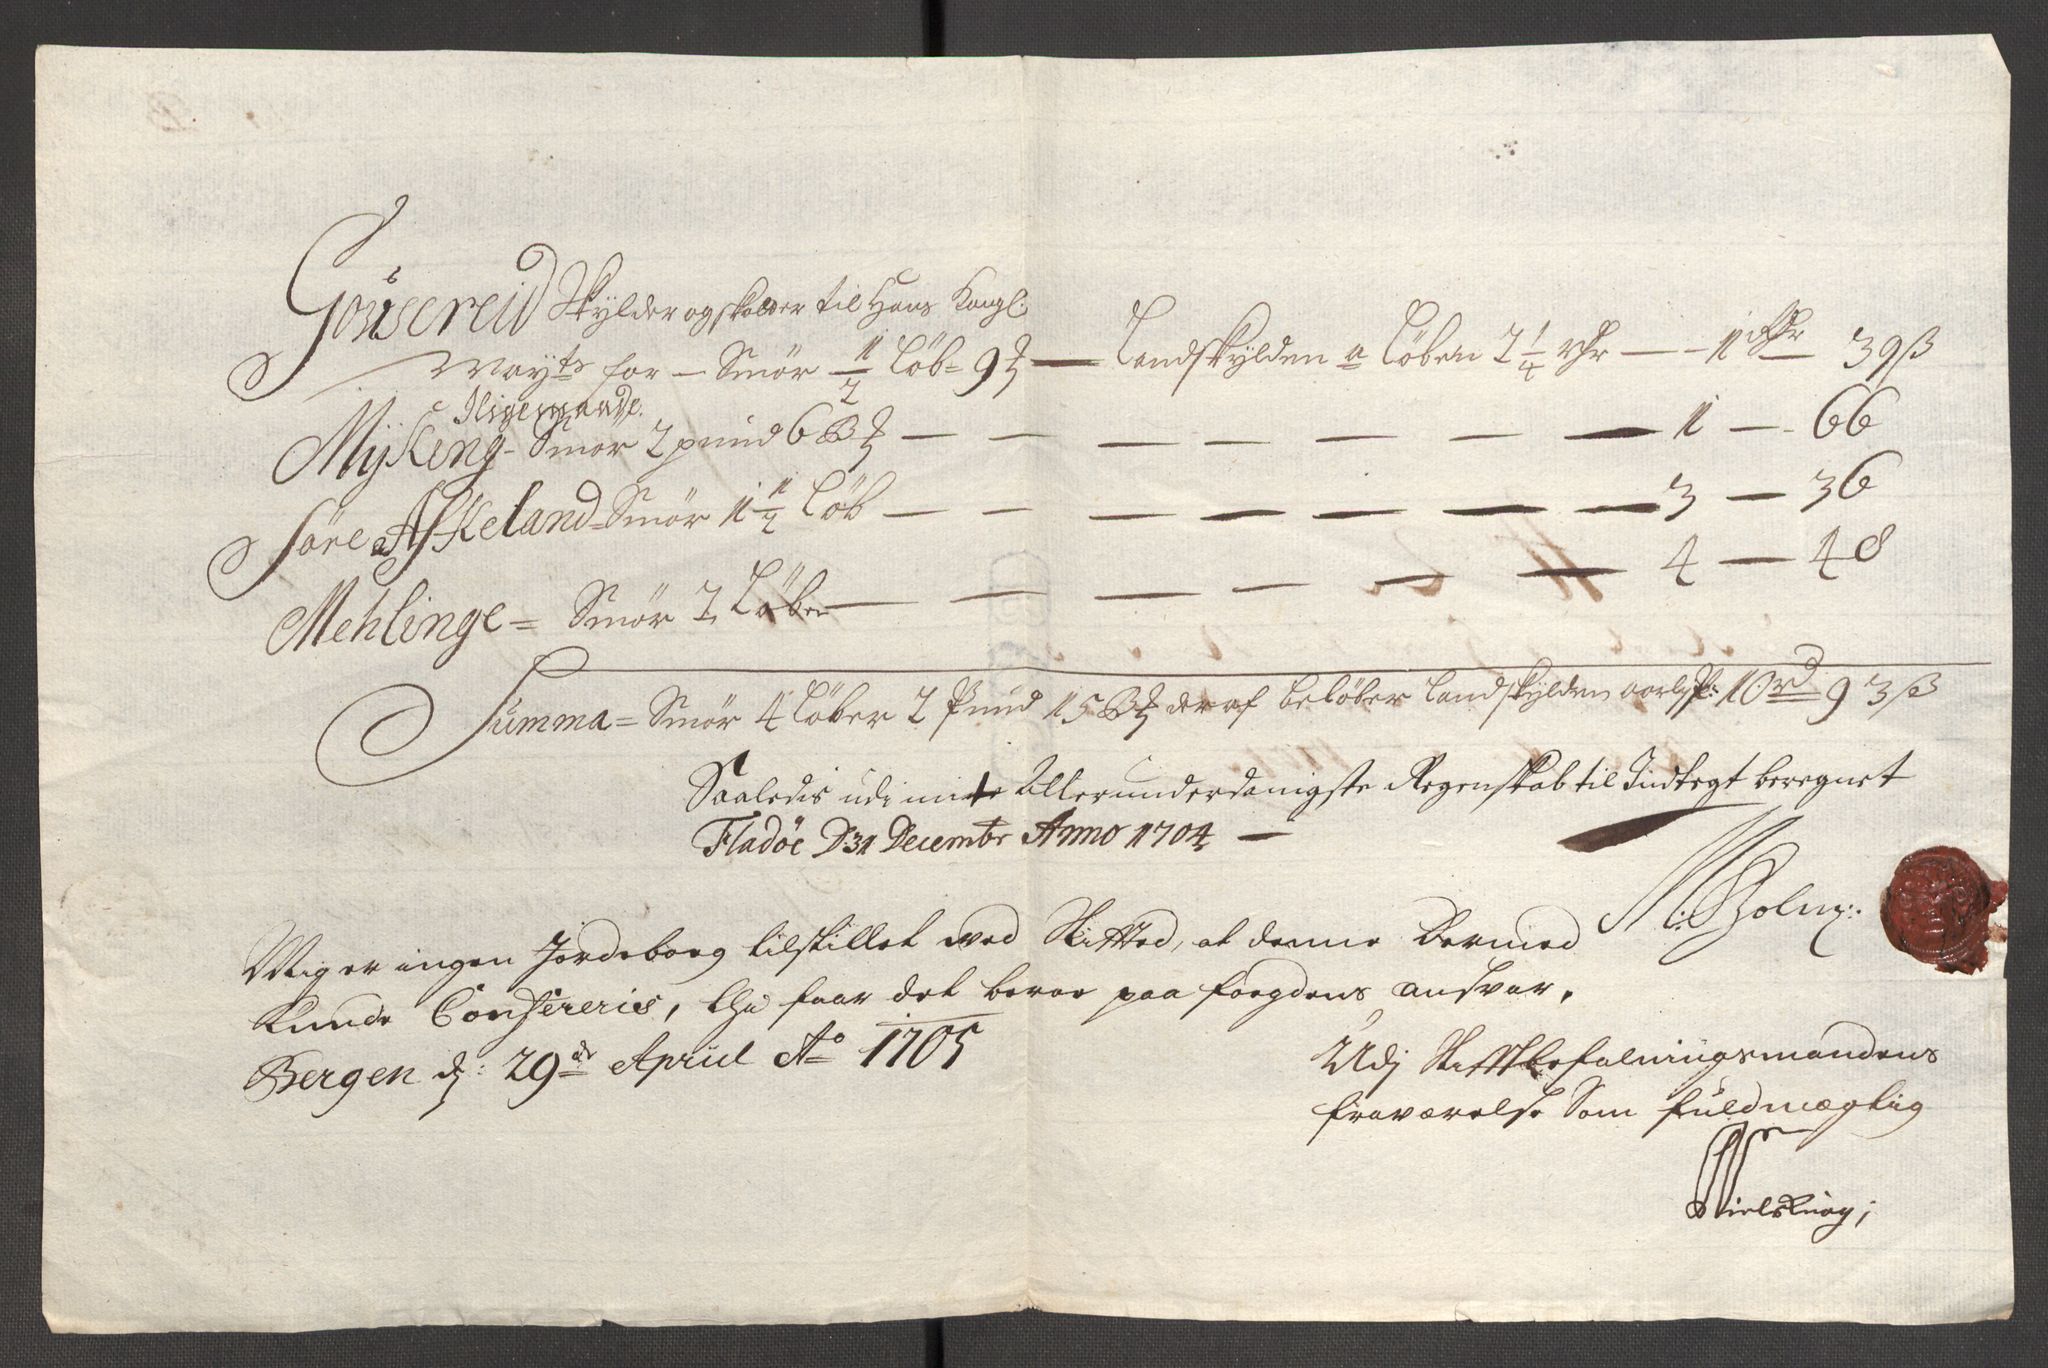 Gousereid Skylder og skatter til Hans Kongl:
Mayts for – Smör 1/2 Löb = 9 – Landskylden a Löben 2 1/4 rdr – 1 rdr 39 ß
Iligemaade
Myking – Smör 2 pund 6 – 1 – 66
Söre Askeland = Smör 1 1/2 Löb – 3 – 36
Mehlinge = Smör 2 Löber – 4 – 48
Summa = Smör 4 Löber 2 Pund 15 der af belöber Landskylden aarl: 10 rd 93 ß
Saaledis udi mit Allerunderdanigste Regenskab til Indtegt beregnet
Fladöe D 31 Decembr Anno 1704 –
Holm:
Mig er ingen Jordebog tilstillet ved Stifted, at denne dermed
kunde Confereris, thi faar det beroe paa fogdens ansvar,
Bergen d: 29de Apriil Ao 1705
Udj Stiftbefalningsmandens
fraværelse Som fuldmægtig
Niels Knag;